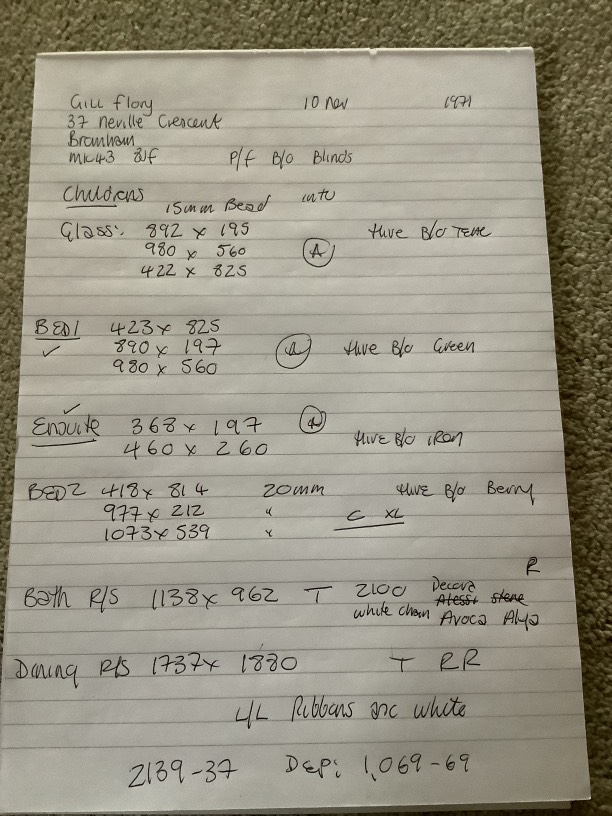 Gill Flory 10 Nov 1971
37 Neville Crescent
Bromham
MK43 8JF P/f B/o Blinds
Childrens 15mm Bead into
Glass: 892 x 195 Hive B/o TEAL
980 x 560 A
422 x 825
BED1 423 x 825
✓ 890 x 197 A Hive B/o Green
980 x 560
✓
Ensuite 368 x 197 A
460 x 260 Hive B/o IRON
BED2 418 x 814 20mm Hive B/o Berry
977 x 212 " C XL
1073 x 539 "
R
Bath R/S 1138 x 962 T 2100 Decora Alessi stone
white chain Avoca Alya
Dining R/S 1737 x 1880 T RR
L/L Ribbons arc white
2139-37 DEP: 1,069-69